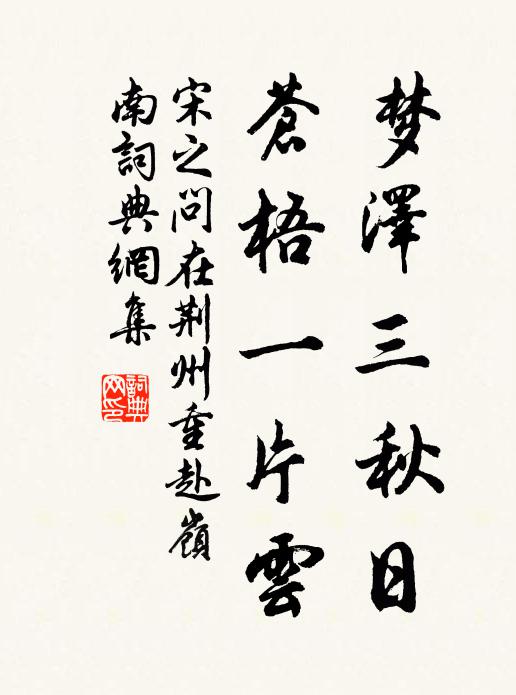 梦澤三秋日
蒼梧一片雲
宋之問在荆州重赴嶺
南詞典網集
詞典
网印